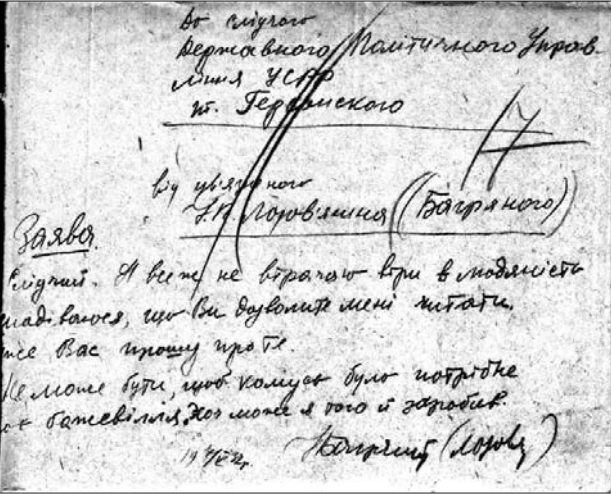 До слідчого
Державного Політичного Управ-
ління УСРР
т. Герсонского
17
від ув'язненого
Ів. Лозов'ягина (Багряного)
Заява.
Слідчий. Я все ж не втрачаю віри в людяність
надіваюся, що Ви дозволите мені читати,
же Вас прошу про те.
Не може бути, щоб комусь було потрібне
божевілля. Хоч може я того й заробив.
Ів Багряний (Лозов)